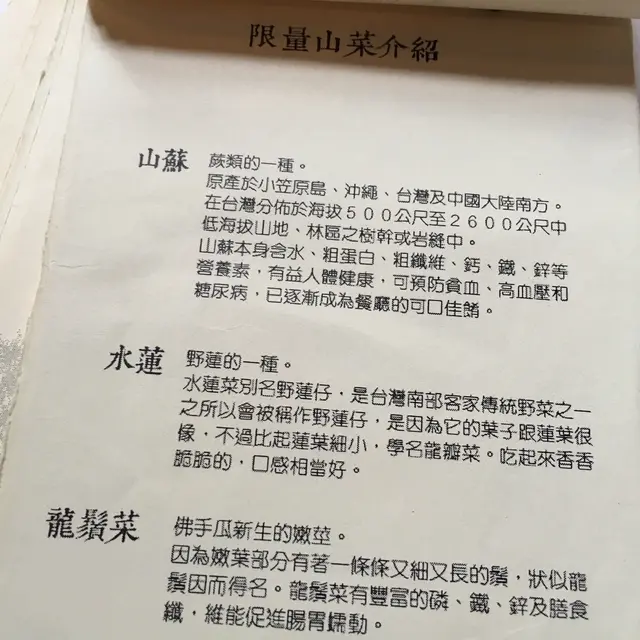 限量山菜介紹
山蘇 蕨類的一種。
原產於小笠原島、沖繩、台灣及中國大陸南方。
在台灣分佈於海拔500公尺至2600公尺中
低海拔山地、林區之樹幹或岩縫中。
山蘇本身含水、粗蛋白、粗纖維、鈣、鐵、鋅等
營養素，有益人體健康，可預防貧血、高血壓和
糖尿病，已逐漸成為餐廳的可口佳餚。
水蓮 野蓮的一種。
水蓮菜別名野蓮仔，是台灣南部客家傳統野菜之一
之所以會被稱作野蓮仔，是因為它的葉子跟蓮葉很
像，不過比起蓮葉細小，學名龍瓣菜。吃起來香香
脆脆的，口感相當好。
龍鬚菜 佛手瓜新生的嫩莖。
因為嫩葉部分有著一條條又細又長的鬚，狀似龍
鬚因而得名。龍鬚菜有豐富的磷、鐵、鋅及膳食
纖，維能促進腸胃蠕動。